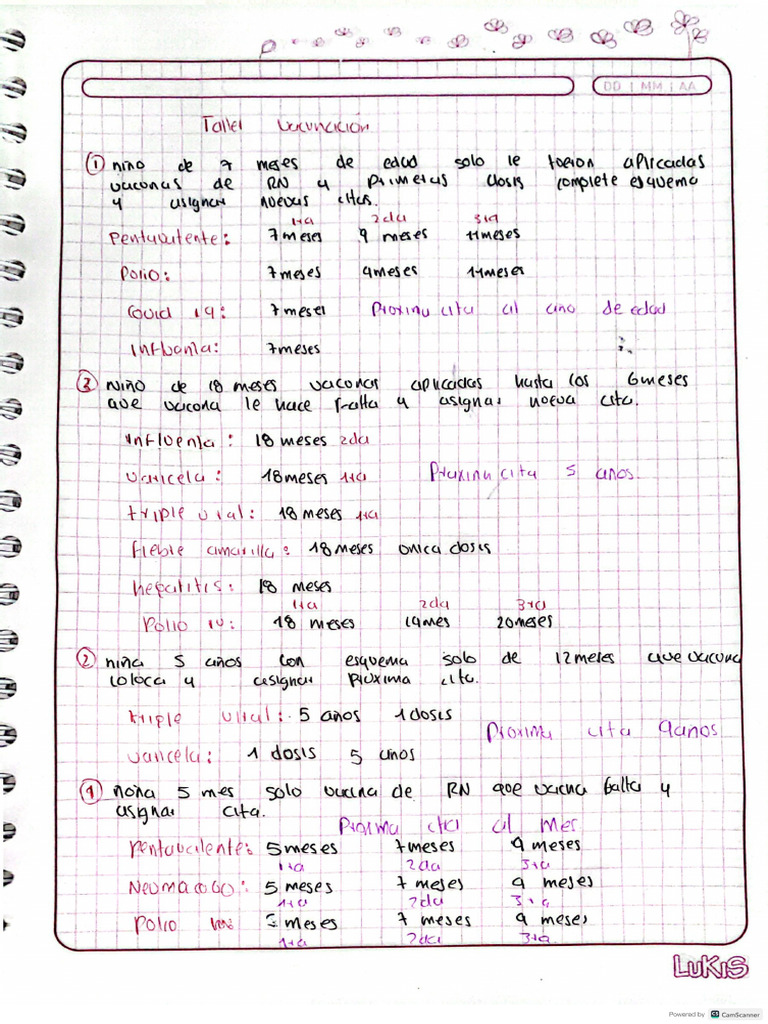 DD | MM | AA
Taller Vacunación
① niño de 7 meses de edad solo le fueron aplicadas
vacunas de RN y primeras dosis complete esquema
y asignar nuevas citas.
1ra 2da 3ra
Pentavalente: 7 meses 9 meses 11 meses
Polio: 7 meses 9 meses 11 meses
Covid 19: 7 meses Proxima cita al año de edad
Influenza: 7 meses
③ niño de 18 meses vacunas aplicadas hasta los 6 meses
que vacuna le hace falta y asignar nueva cita.
influenza: 18 meses 2da
varicela: 18 meses 1ra Proxima cita 5 años.
triple viral: 18 meses 1ra
fiebre amarilla: 18 meses unica dosis
hepatitis: 18 meses
1ra 2da 3ra
Polio iv: 18 meses 19 mes 20 meses
② niña 5 años con esquema solo de 12 meses que vacuna
coloca y asignar proxima cita.
triple viral: 5 años 1 dosis
Proxima cita 9 años
varicela: 1 dosis 5 años
④ niña 5 mes solo vacuna de RN que vacuna falta y
asignar cita.
Proxima cita al mes
Pentavalente: 5 meses 7 meses 9 meses
1ra 2da 3ra
Neumococo: 5 meses 7 meses 9 meses
1ra 2da 3ra
Polio meses 7 meses 9 meses
1ra 2da 3ra
LuKiS
Powered by CS CamScanner